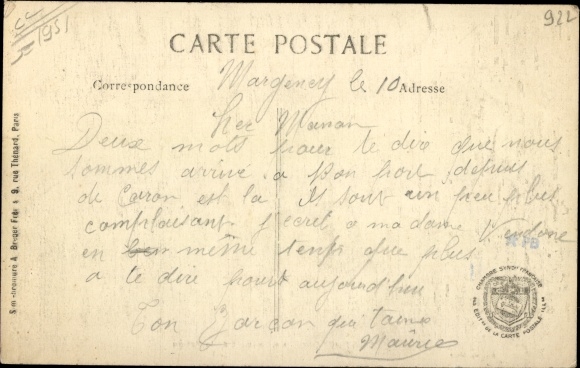 922
1951
CARTE POSTALE
Correspondance
Adresse
Margency le 10
Cher Maman
Deux mots pour te dire que nous
sommes arrivé a Bon port depuis
de est la Ils sont un peu plus
complaisant a madame
en même temps que plus
a te dire pour aujourd'hui
Ton garçon qui t'aime
Maurice
A. Breger Frères 9, rue Thénard, Paris
CHAMBRE SYNDle FRANÇAISE
DE LA CARTE POSTALE ILLée